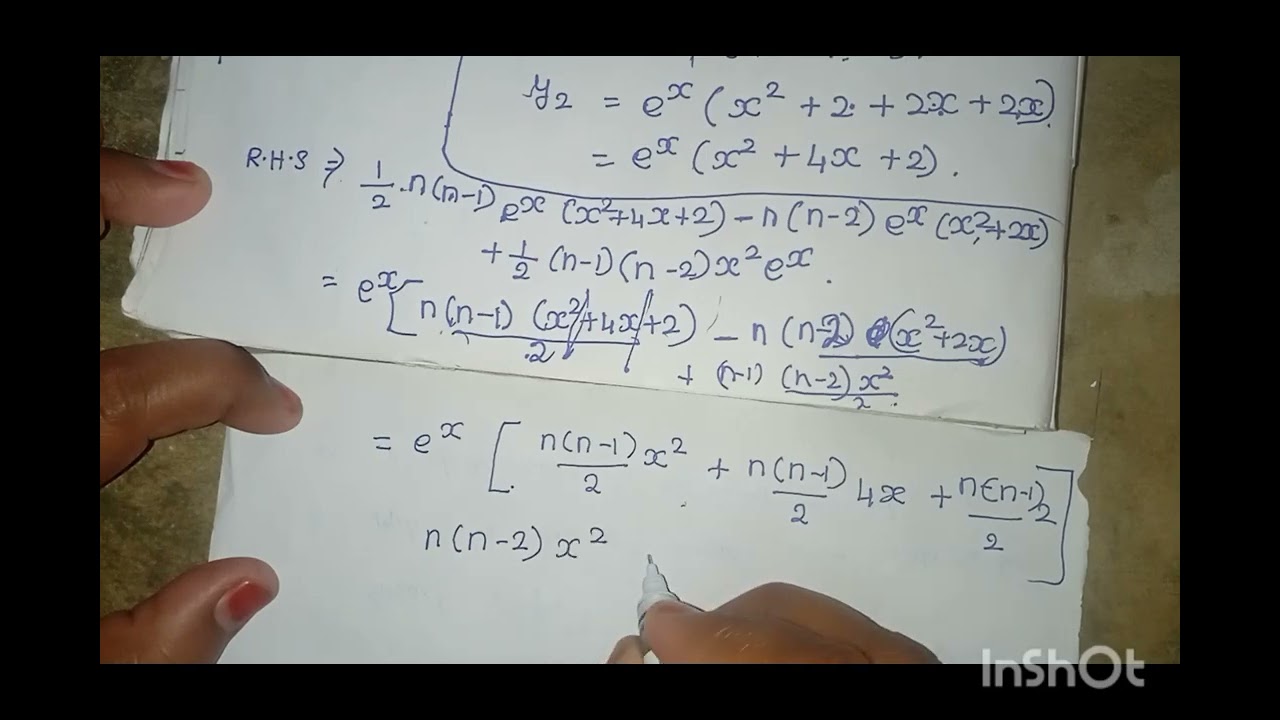 y₂ = eˣ (x² + 2 + 2x + 2x)
= eˣ (x² + 4x + 2) .
R.H.S ⇒ 1/2 . n(n-1) eˣ (x²+4x+2) - n(n-2) eˣ (x²+2x)
+ 1/2 (n-1)(n-2) x² eˣ .
= eˣ [ n(n-1) (x²+4x+2)/2 - n(n-2) (x²+2x)
+ (n-1) (n-2) x²/2 .
= eˣ [ n(n-1)/2 x² + n(n-1)/2 4x + n(n-1)2/2 ]
n(n-2) x²
InShOt